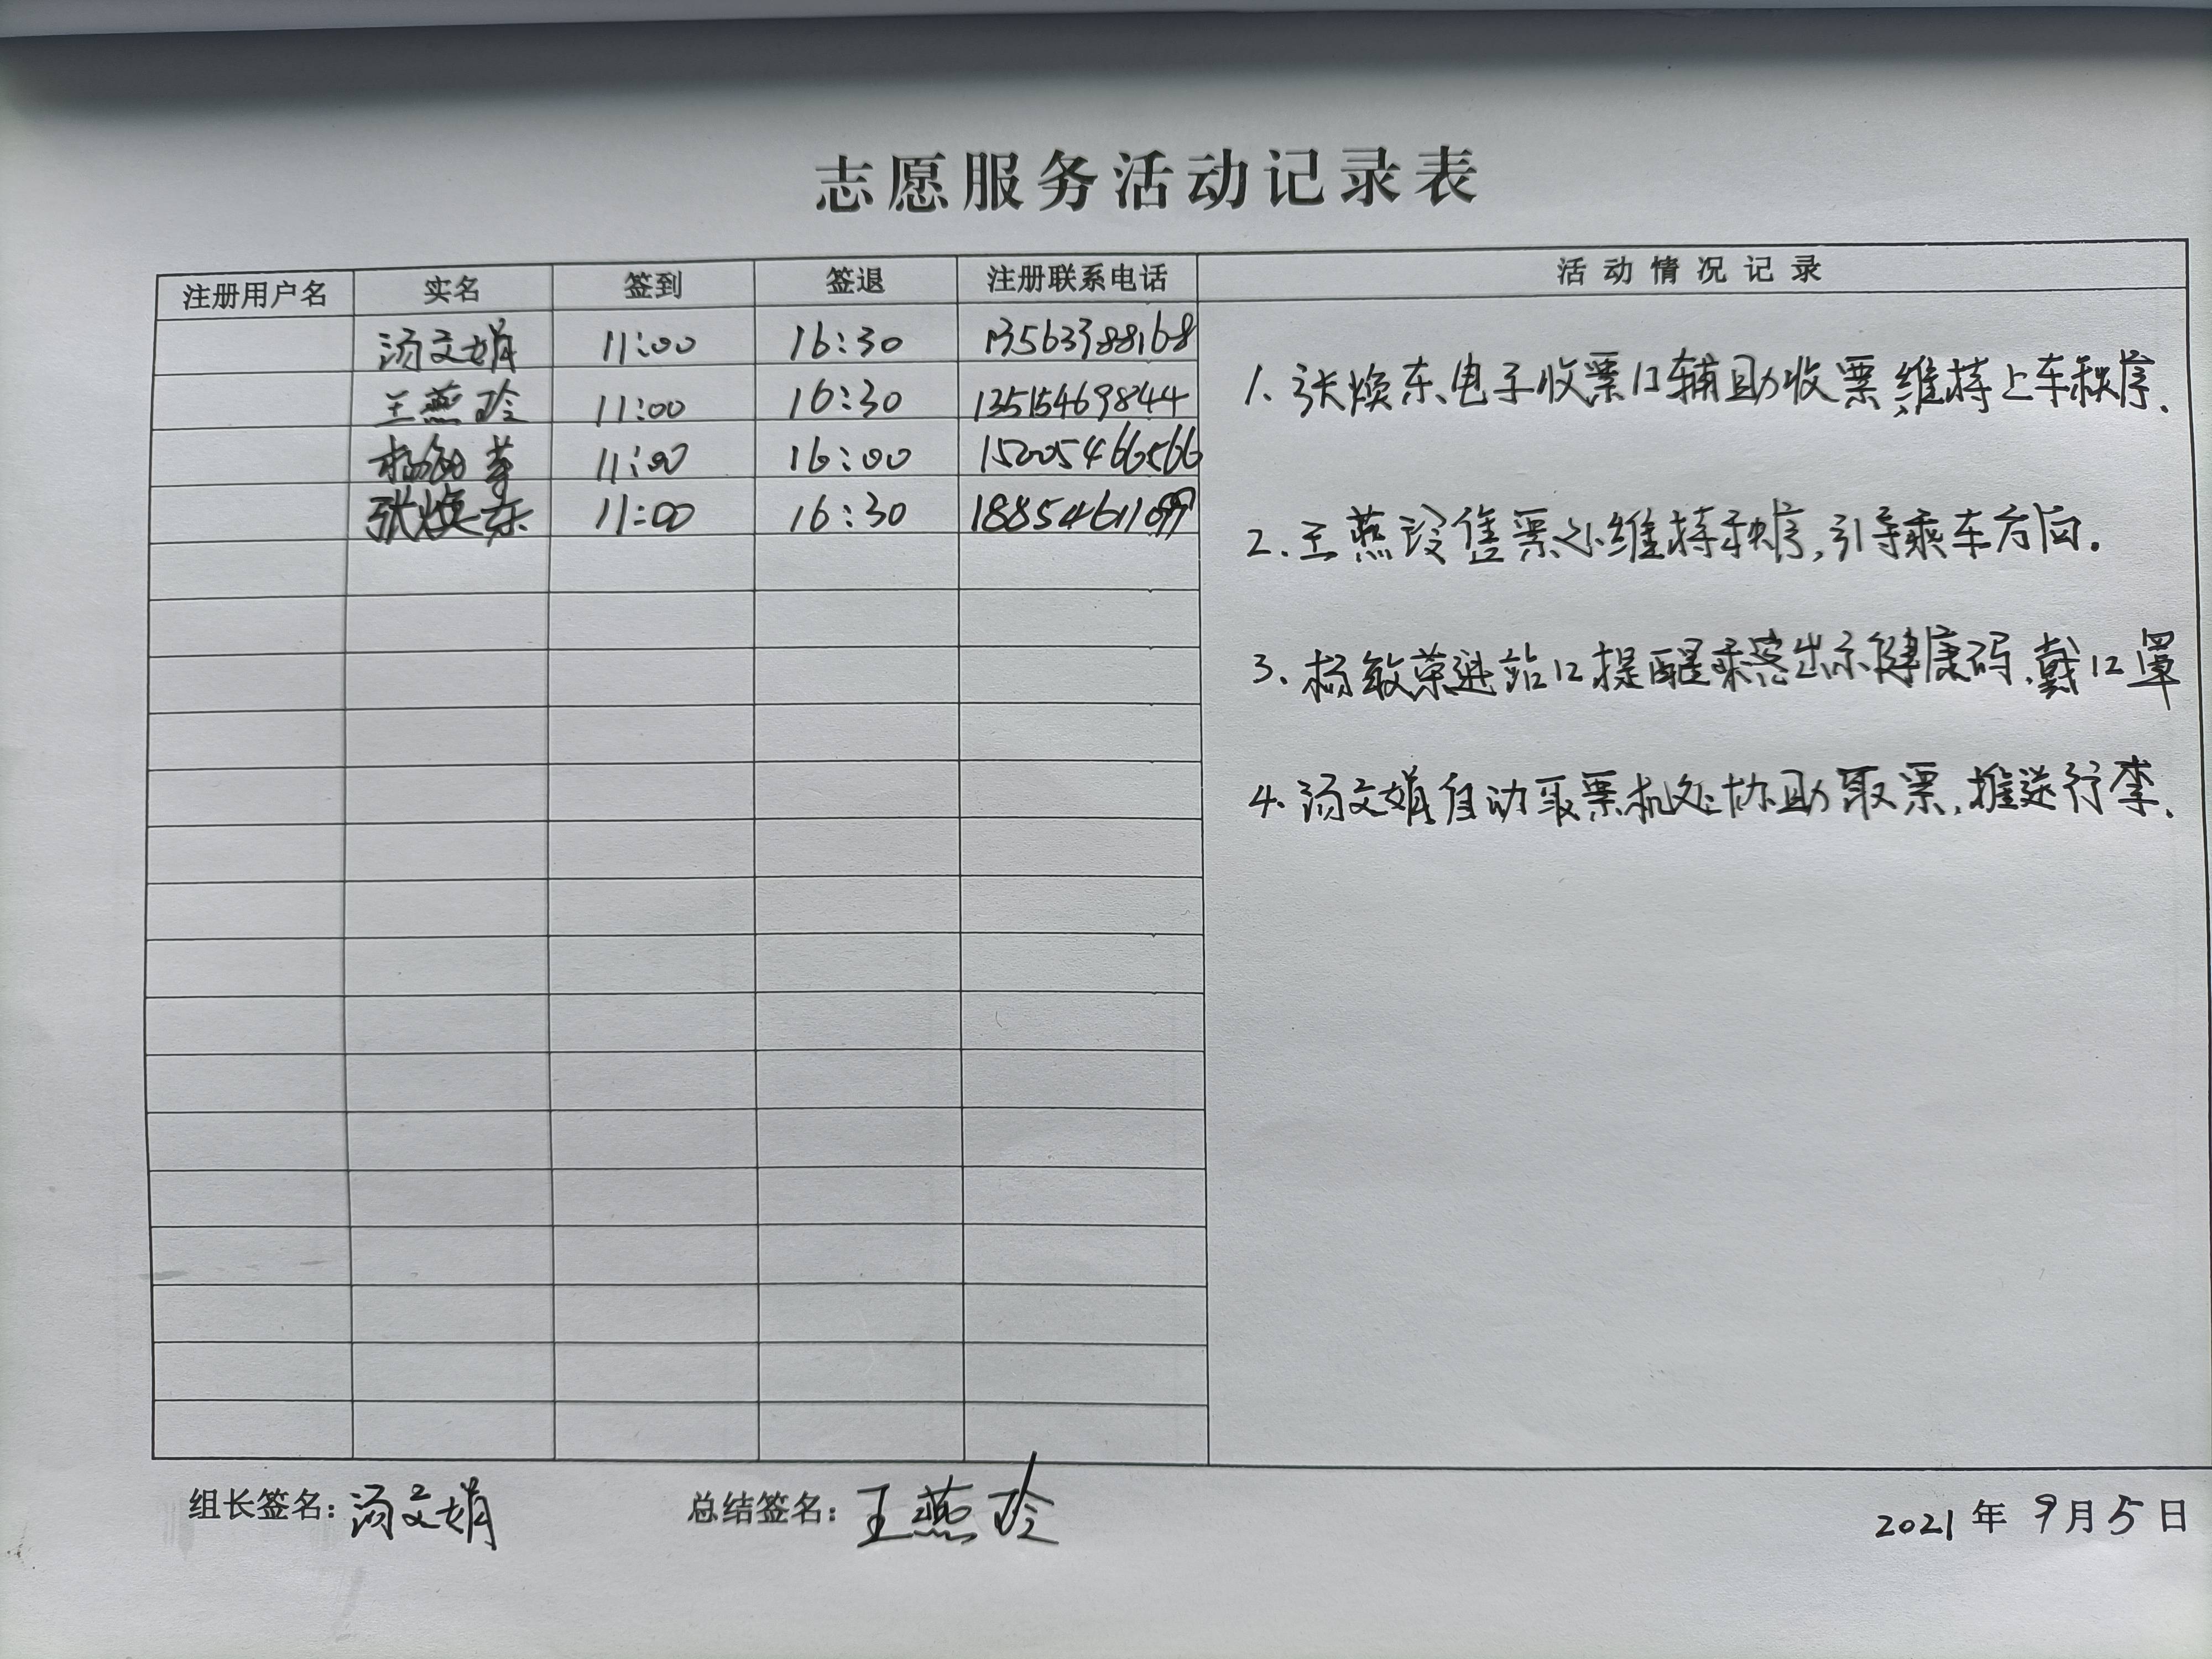 志愿服务活动记录表
注册用户名 实名 签到 签退 注册联系电话 活动情况记录
汤文娟 11:00 16:30 13563388168
王燕玲 11:00 16:30 13515469844
杨敏荣 11:00 16:00 15205466566
张焕东 11:00 16:30
1、张焕东电子收票口辅助收票维持上车秩序、
2、王燕玲售票处维持秩序,引导乘车方向。
3、杨敏荣进站口提醒乘客出示健康码、戴口罩
4、汤文娟自动取票机处协助取票,推送行李、
组长签名:汤文娟 总结签名:王燕玲 2021年9月5日